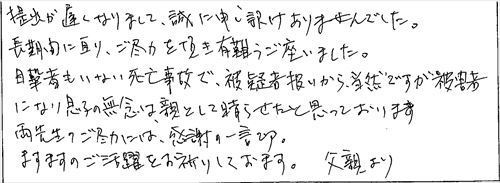 提出が遅くなりまして、誠に申し訳ありませんでした。
長期間に亘り、ご尽力を頂き有難うご座いました。
目撃者もいない死亡事故で、被疑者扱いから、当然ですが被害者
になり息子の無念は親として晴らせたと思っております
両先生のご尽力には、感謝の一言です。
ますますのご活躍をお祈りしております。 父親より